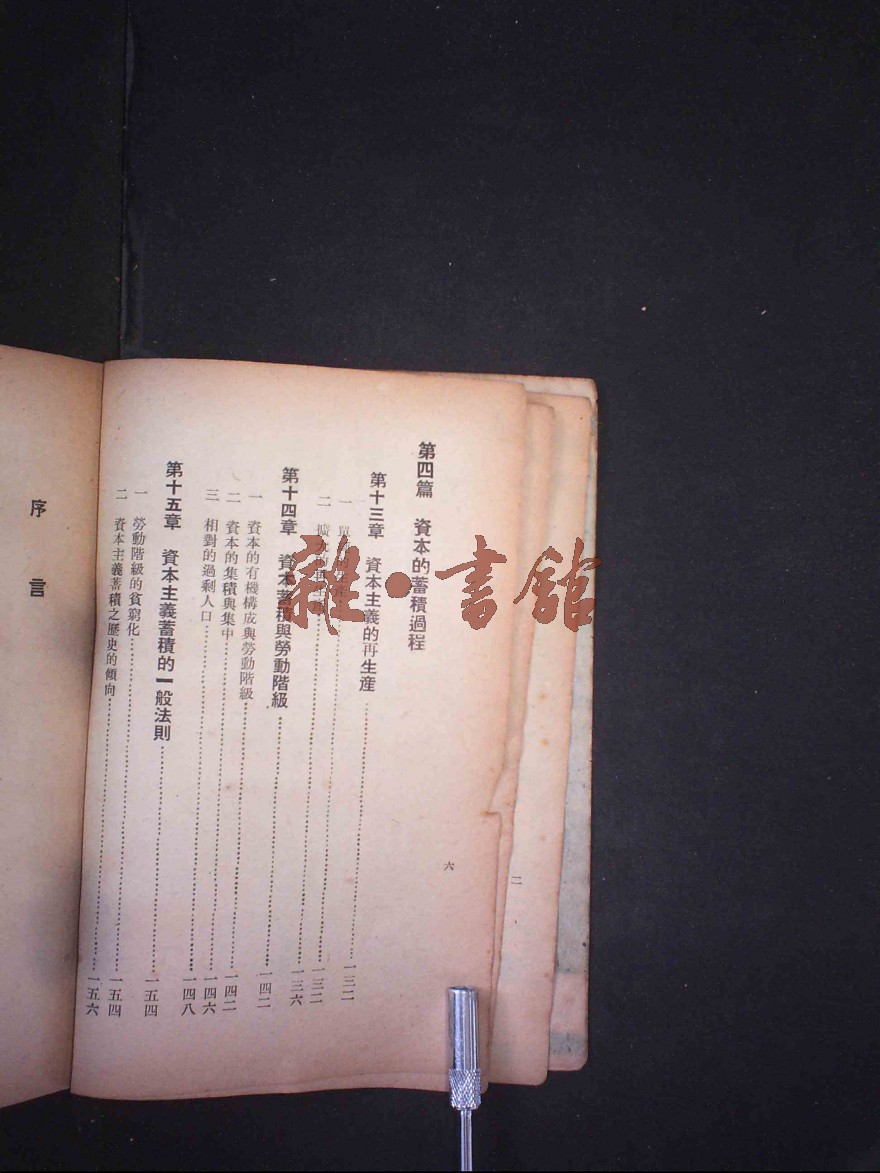 第四篇 資本的蓄積過程
第十三章 資本主義的再生産……一三二
一 單……一三二
二 擴大的再生産……一三六
第十四章 資本蓄積與勞動階級……一四二
一 資本的有機構成與勞動階級……一四二
二 資本的集積與集中……一四六
三 相對的過剩人口……一四八
第十五章 資本主義蓄積的一般法則……一五四
一 勞動階級的貧窮化……一五四
二 資本主義蓄積之歷史的傾向……一五六
六
二
序言
雜·書館